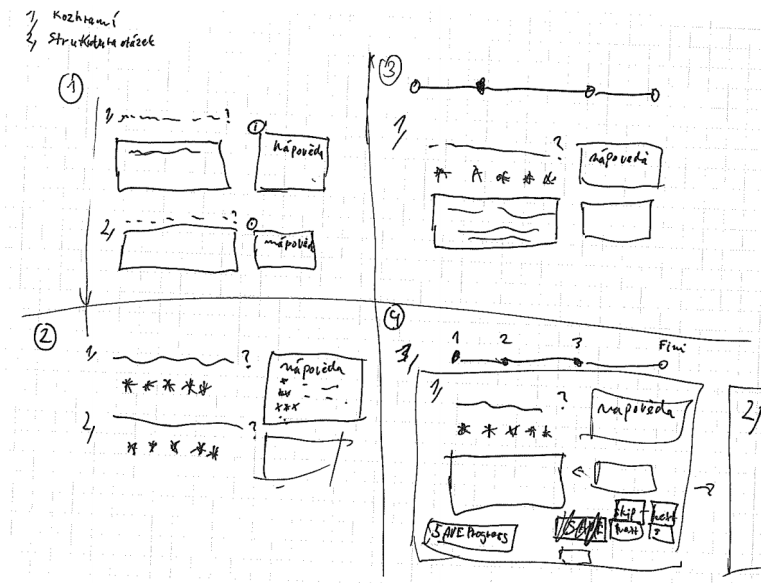 1, Rozhraní
2, Struktura otázek
1
1, ?
i
nápověda
2, ?
nápověda
2
1, ?
nápověda
2, ?
3
1, ?
nápověda
4
1 2 3 Fini
1, ?
nápověda
SAVE Progress
SAVE
skip
next
2,